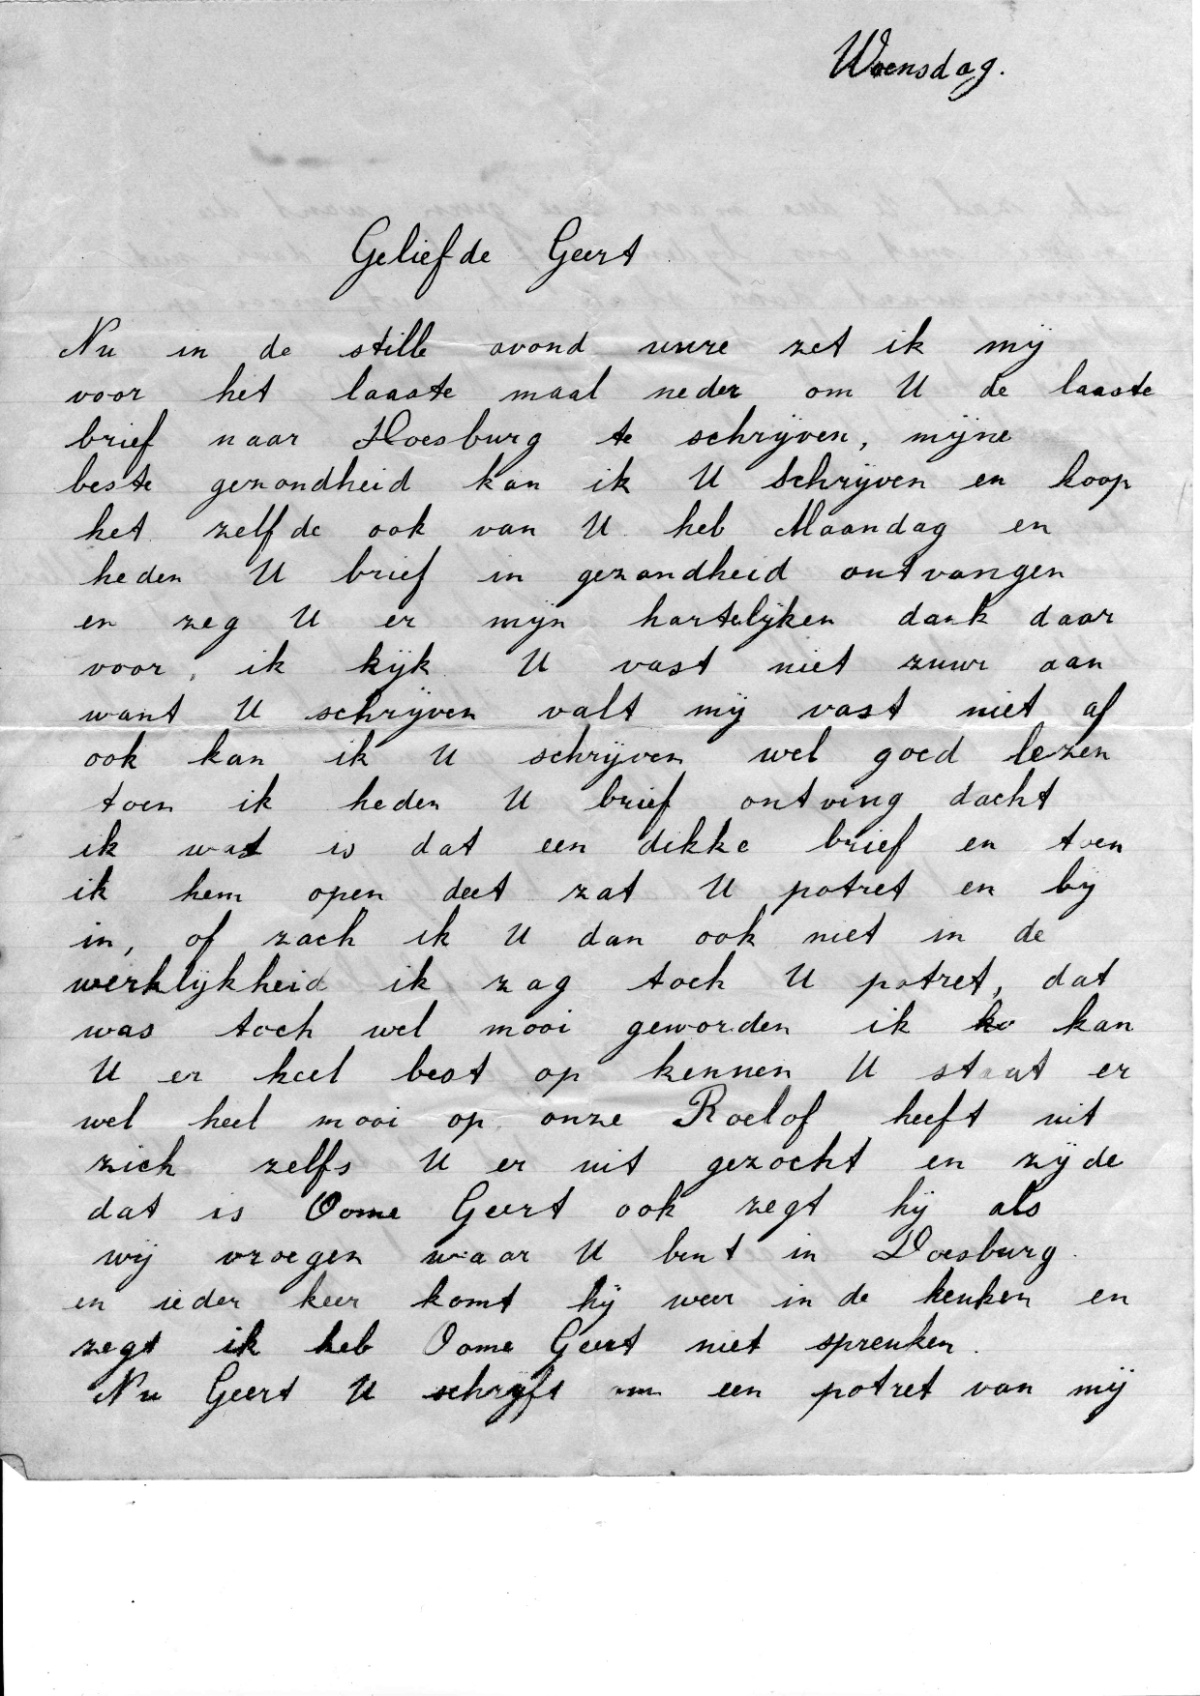 Woensdag.
Geliefde Geert
Nu in de stille avond uure zet ik mij
voor het laaste maal neder om U de laaste
brief naar Doesburg te schrijven, mijne
beste gezondheid kan ik U schrijven en hoop
het zelfde ook van U heb Maandag en
heden U brief in gezondheid ontvangen
en zeg U er mijn hartelijken dank daar
voor, ik kijk U vast niet zuur aan
want U schrijven valt mij vast niet af
ook kan ik U schrijven wel goed lezen
toen ik heden U brief ontving dacht
ik wat is dat een dikke brief en toen
ik hem open deet zat U potret en bij
in, of zach ik U dan ook niet in de
werklijkheid ik zag toch U potret, dat
was toch wel mooi geworden ik ko kan
U er heel best op kennen U staat er
wel heel mooi op onze Roelof heeft uit
zich zelfs U er uit gezocht en zijde
dat is Oome Geert ook zegt hij als
wij vroegen waar U bent in Doesburg.
en ieder keer komt hij weer in de keuken en
zegt ik heb Oome Geert niet spreuken.
Nu Geert U schrijft om een potret van mij